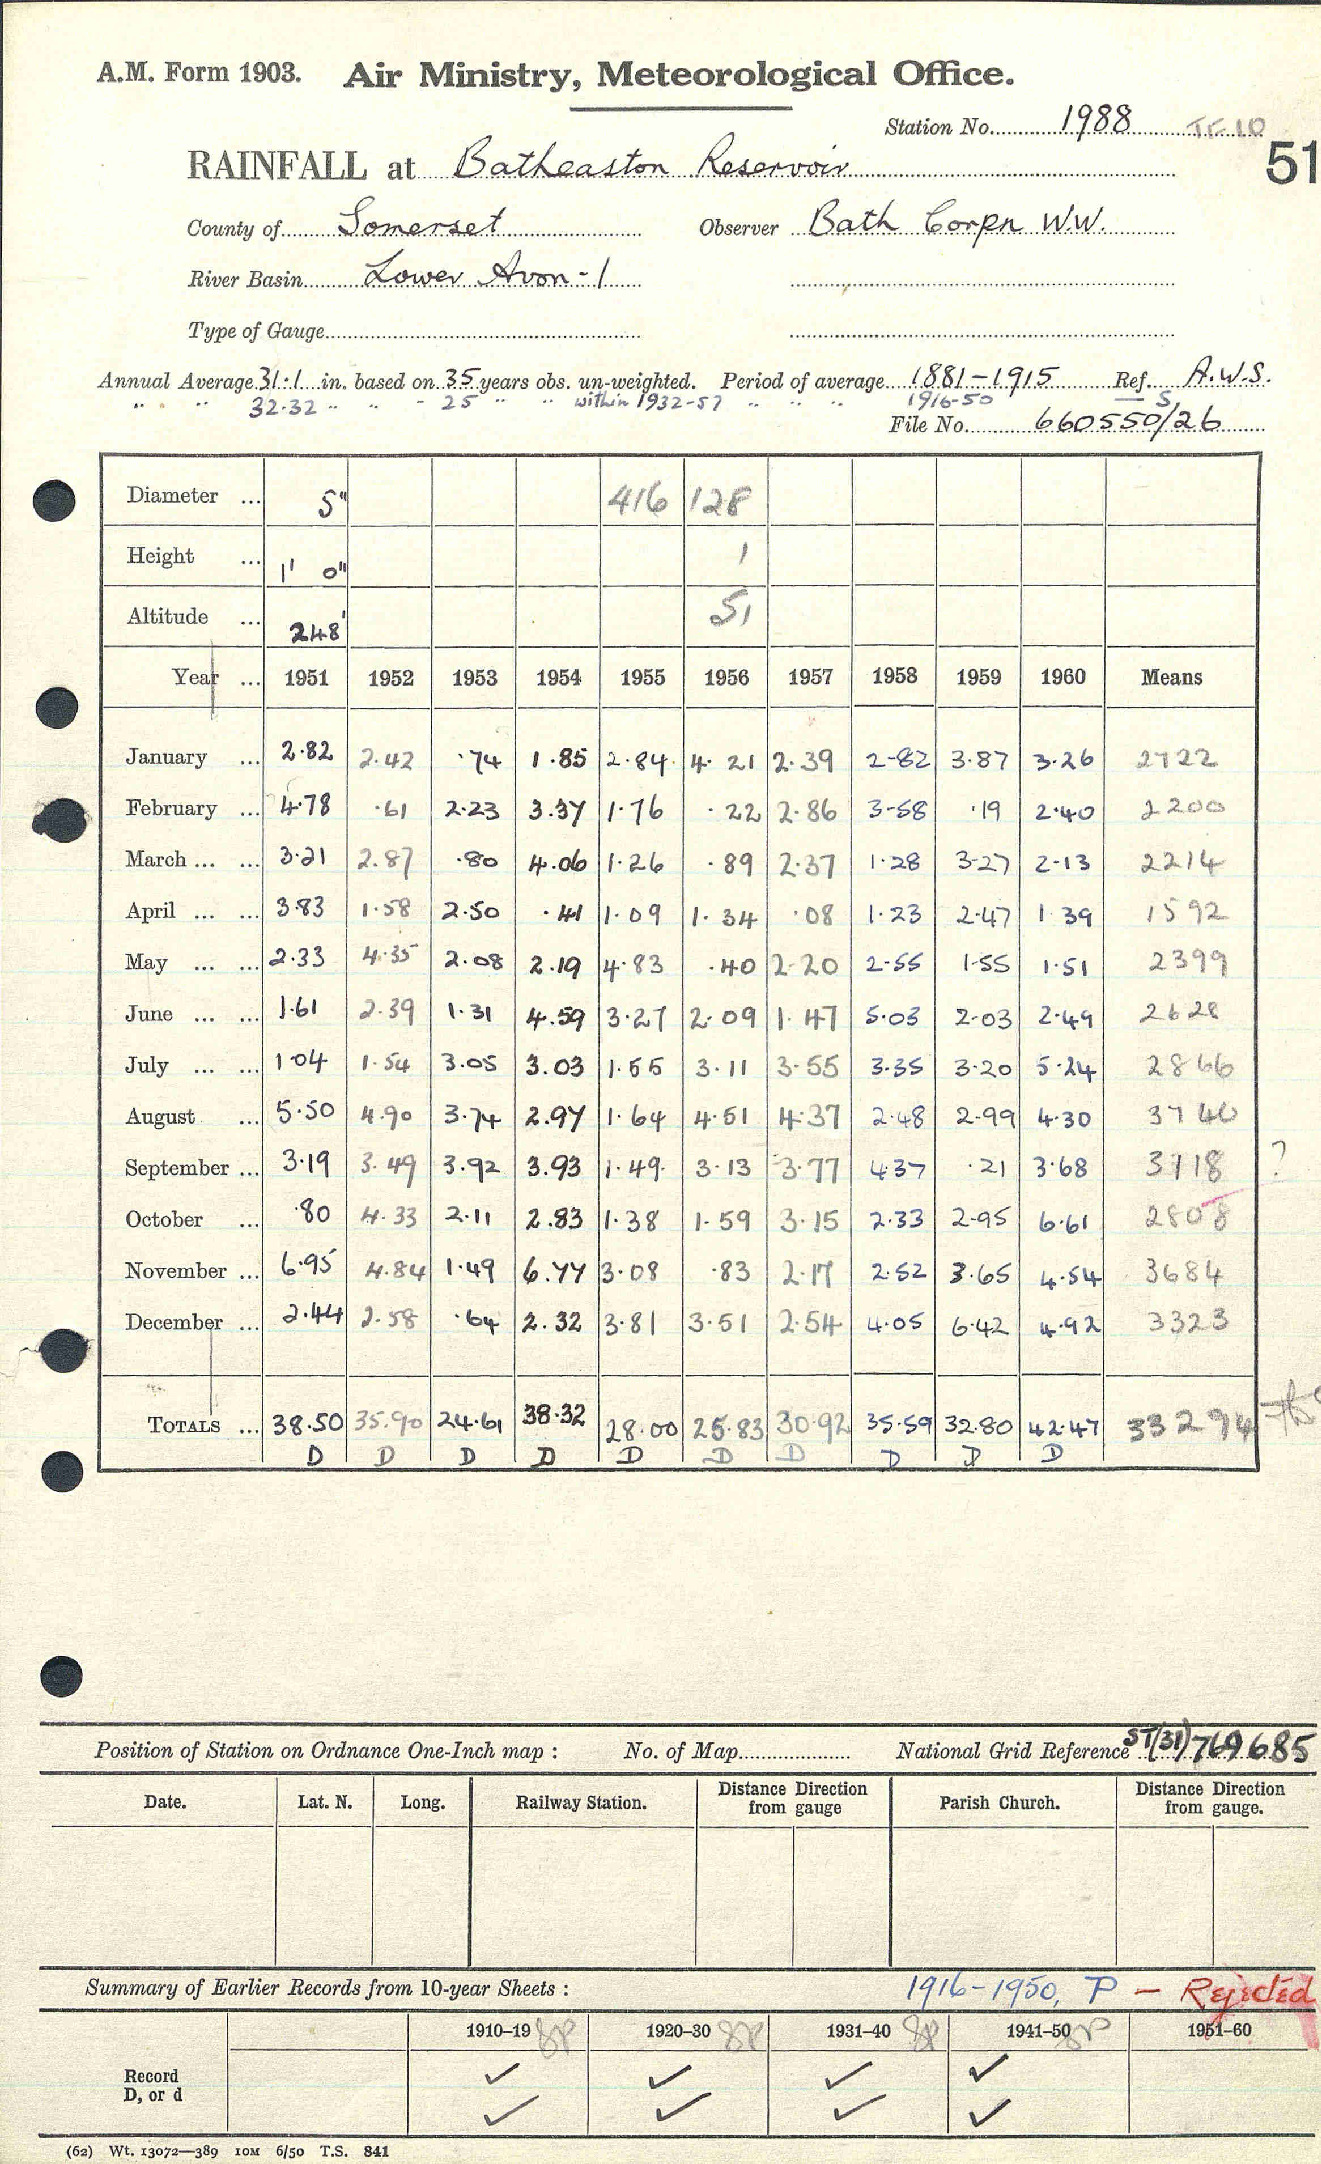 A.M. Form 1903. Air Ministry, Meteorological Office.
Station No. 1988 TF 10
51
RAINFALL at Batheaston Reservoir
County of Somerset Observer Bath Corpn W.W.
River Basin Lower Avon-1
Type of Gauge
Annual Average 31.1 in. based on 35 years obs. un-weighted. Period of average 1881-1915 Ref. A.W.S.
" " " 32.32 " " - 25 " " within 1932-57 " " " 1916-50 — S,
File No. 660550/26
Diameter ... 5" 416 128
Height ... 1' 0" 1
Altitude ... 248' 51
Year ... 1951 1952 1953 1954 1955 1956 1957 1958 1959 1960 Means
January ... 2.82 2.42 .74 1.85 2.84 4.21 2.39 2.82 3.87 3.26 2722
February ... 4.78 .61 2.23 3.37 1.76 .22 2.86 3.58 .19 2.40 2200
March ... ... 3.21 2.87 .80 4.06 1.26 .89 2.37 1.28 3.27 2.13 2214
April ... ... 3.83 1.58 2.50 .41 1.09 1.34 .08 1.23 2.47 1.39 1592
May ... ... 2.33 4.35 2.08 2.19 4.83 .40 2.20 2.55 1.55 1.51 2399
June ... ... 1.61 2.39 1.31 4.59 3.27 2.09 1.47 5.03 2.03 2.49 2628
July ... ... 1.04 1.54 3.05 3.03 1.55 3.11 3.55 3.35 3.20 5.24 2866
August ... 5.50 4.90 3.74 2.97 1.64 4.51 4.37 2.48 2.99 4.30 3740
September ... 3.19 3.49 3.92 3.93 1.49 3.13 3.77 4.37 .21 3.68 3118 ?
October ... .80 4.33 2.11 2.83 1.38 1.59 3.15 2.33 2.95 6.61 2808
November ... 6.95 4.84 1.49 6.77 3.08 .83 2.17 2.52 3.65 4.54 3684
December ... 2.44 2.58 .64 2.32 3.81 3.51 2.54 4.05 6.42 4.92 3323
TOTALS ... 38.50 35.90 24.61 38.32 28.00 25.83 30.92 35.59 32.80 42.47 33294
D D D D D D D D D D
Position of Station on Ordnance One-Inch map : No. of Map National Grid Reference ST(31)769685
Date. Lat. N. Long. Railway Station. Distance Direction from gauge Parish Church. Distance Direction from gauge.
Summary of Earlier Records from 10-year Sheets : 1916-1950, P — Rejected
1910-19 SP 1920-30 SP 1931-40 SP 1941-50 SP 1951-60
Record ✓ ✓ ✓ ✓
D, or d ✓ ✓ ✓ ✓
(62) Wt. 13072—389 10M 6/50 T.S. 841